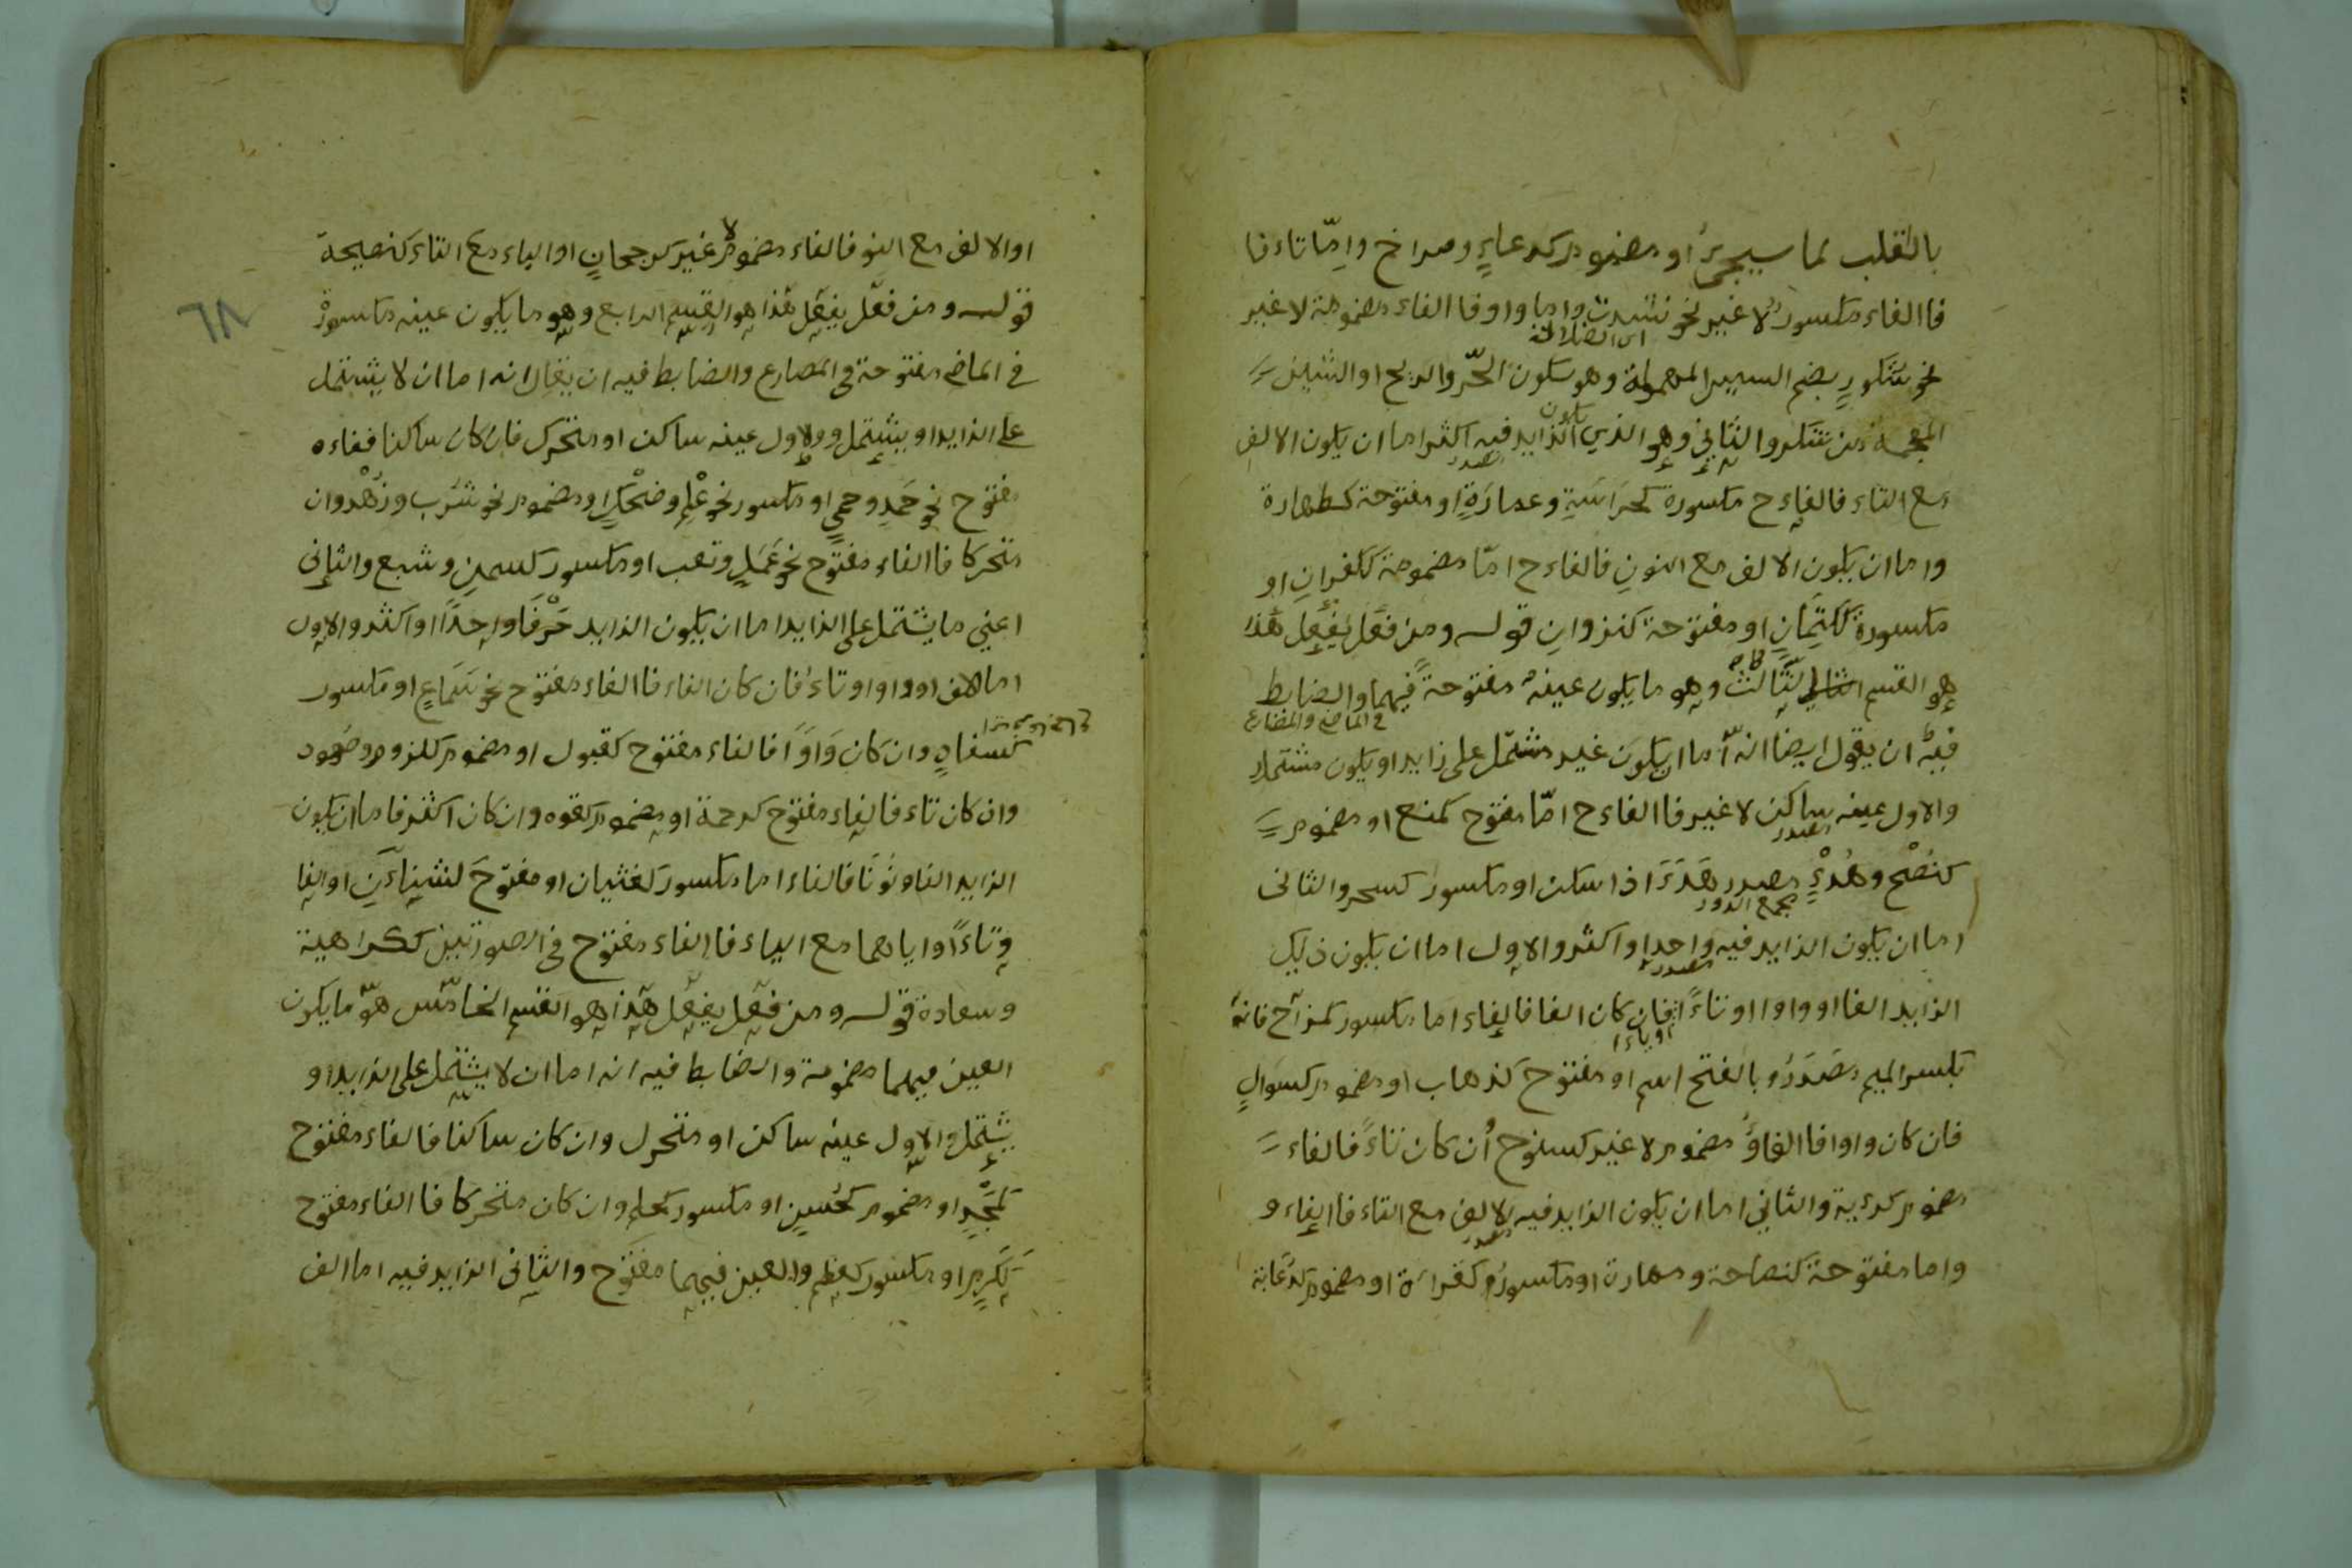 بالقلب كما سيجئ او مضموم كدعاءٍ وصراخ وامّا تاء فا
فا الفاء مكسور لا غير نحو نشدت واما واوفا الفاء مضمومة لا غير
اى الضلالة
نحو سُكورٍ بضم السين المهملة وهو سكون الحّر والريح او الشين
المعجمة من شكر والثانى وهو الذي يكون الزايد فيه اكثر اما ان يكون الالف
مصدر
مع التاء فالفاء ح مكسورة كحِرَاسَةِ وعمارَةٍ او مفتوحة كطهارة
واما ان يكون الالف مع النون فالفاء ح امّا مضمومة ككفران او
مكسورة ككِتمانٍ او مفتوحة كنزوانِ قوله ومن فعَل يفعَل هذا
هو القسم الثالث وهو ما يكون عينه مفتوحةً فيهما والضابط
فى الماضى والمضارع
فيه ان يقول ايضا انه اما ان يكون غير مشتمل على زايد او يكون مشتملا
والاول عينه ساكن لا غير فا الفاء ح امّا مفتوح كمنع او مضموم
مصدر
كنُصْح وهُدْءٍ مصدر هَدَءَ اذا سكن او مكسور كسحر والثانى
اما ان يكون الزايد فيه واحدا او اكثر والاول اما ان يكون ذلك
مصدر
الزايد الفا او واوا او تاءً فان كان الفا فالفاء اما مكسور كمزاح فانه
او ياءا
بكسر الميم مصدَرُ وبالفتح اسم او مفتوح كذهاب او مضموم كسوالٍ
فان كان واوا فا الفاؤ مضموم لا غير كسنوح اُن كان تاءً فالفاء
مضموم كرءية والثاني اما ان يكون الزايد فيه الالف مع التاء فا الفاء و
مصدر
واما مفتوحة كنصاحة ومهارت او مكسورُ كقراءة او مضموم كدُعابة
٦٨
او الالف مع النو فالفاء مضموم لا غير كرجحانٍ او الياء مع التاء كنصيحة
قوله ومن فعِل يفعَل هذا هو القسم الرابع وهو ما يكون عينه مكسورة
فى الماضى مفتوحة فى المضارع والضابط فيه ان يقال انه اما ان لا يشتمل
على الزايد او يشتمل والاول عينه ساكن او متحرك فان كان ساكنا ففاءه
مفتوح نحو حَمدٍ وحمىٍ او مكسور نحو عْلِم وضحْكٍ او مضموم نحو شُرب وزُهْد وان
متحركا فا الفاء مفتوح نحو عَمَلٍ وتعب او مكسور كسمن وشبع والثانى
اعني ما يشتمل على الزايد اما ان يكون الزايد حَرْفًا واحدًا او اكثر والاول
اما الالف او واو او تاءُ فان كان الفاء فا الفاء مفتوح نحو سَماعٍ او مكسور
كسفادٍ وان كان وَاوًا فالفاء مفتوح كقبول او مضموم كلزوم وصُعود
وان كان تاء فالفاء مفتوح كرحمة او مضموم كقوه وان كان اكثر فا ما ان يكون
الزايد الفا ونُونًا فالفاء اما مكسور كغشيان او مفتوّحَ لشنئانَ او الفا
وتاءًا او اياهما مع الياء فا الفاء مفتوح فى الصورتين ككراهية
وسعادة قوله ومن فعل يفعل هذا هو القسم الخامس هو ما يكون
العين فيهما مضمومة والضابط فيه انه اما ان لا يشتمل على الزايد او
يشتمل والاول عينه ساكن او متحرك وان كان ساكنا فالفاء مفتوح
كمَجْدٍ او مضموم كحُسنٍ او مكسور كحلم وان كان متحركا فا الفاء مفتوح
ككَرَمٍ او مكسور كعظم والعين فيهما مفتوح والثانى الزايد فيه اما الف